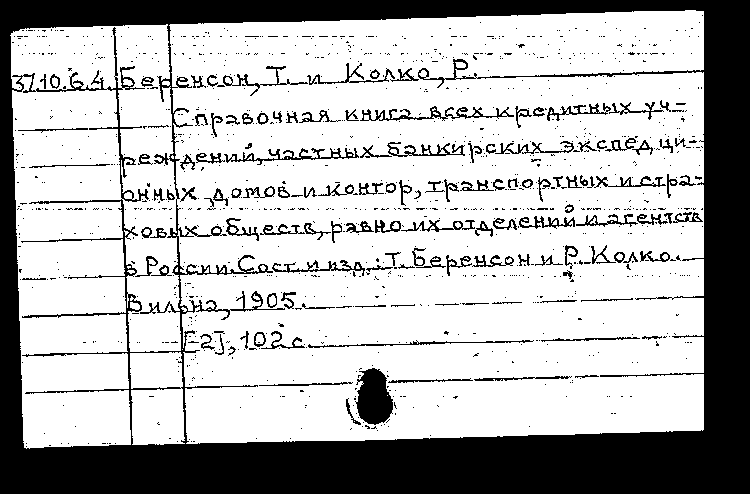 37.10.6.4. Беренсон, Т. и Колко, Р.
Справочная книга всех кредитных уч-
реждений, частных банкирских экспедици-
онных домов и контор, транспортных и стра-
ховых обществ, равно их отделений и агентств
в России. Сост. и изд.: Т. Беренсон и Р. Колко.
Вильна, 1905.
[2], 102 с.